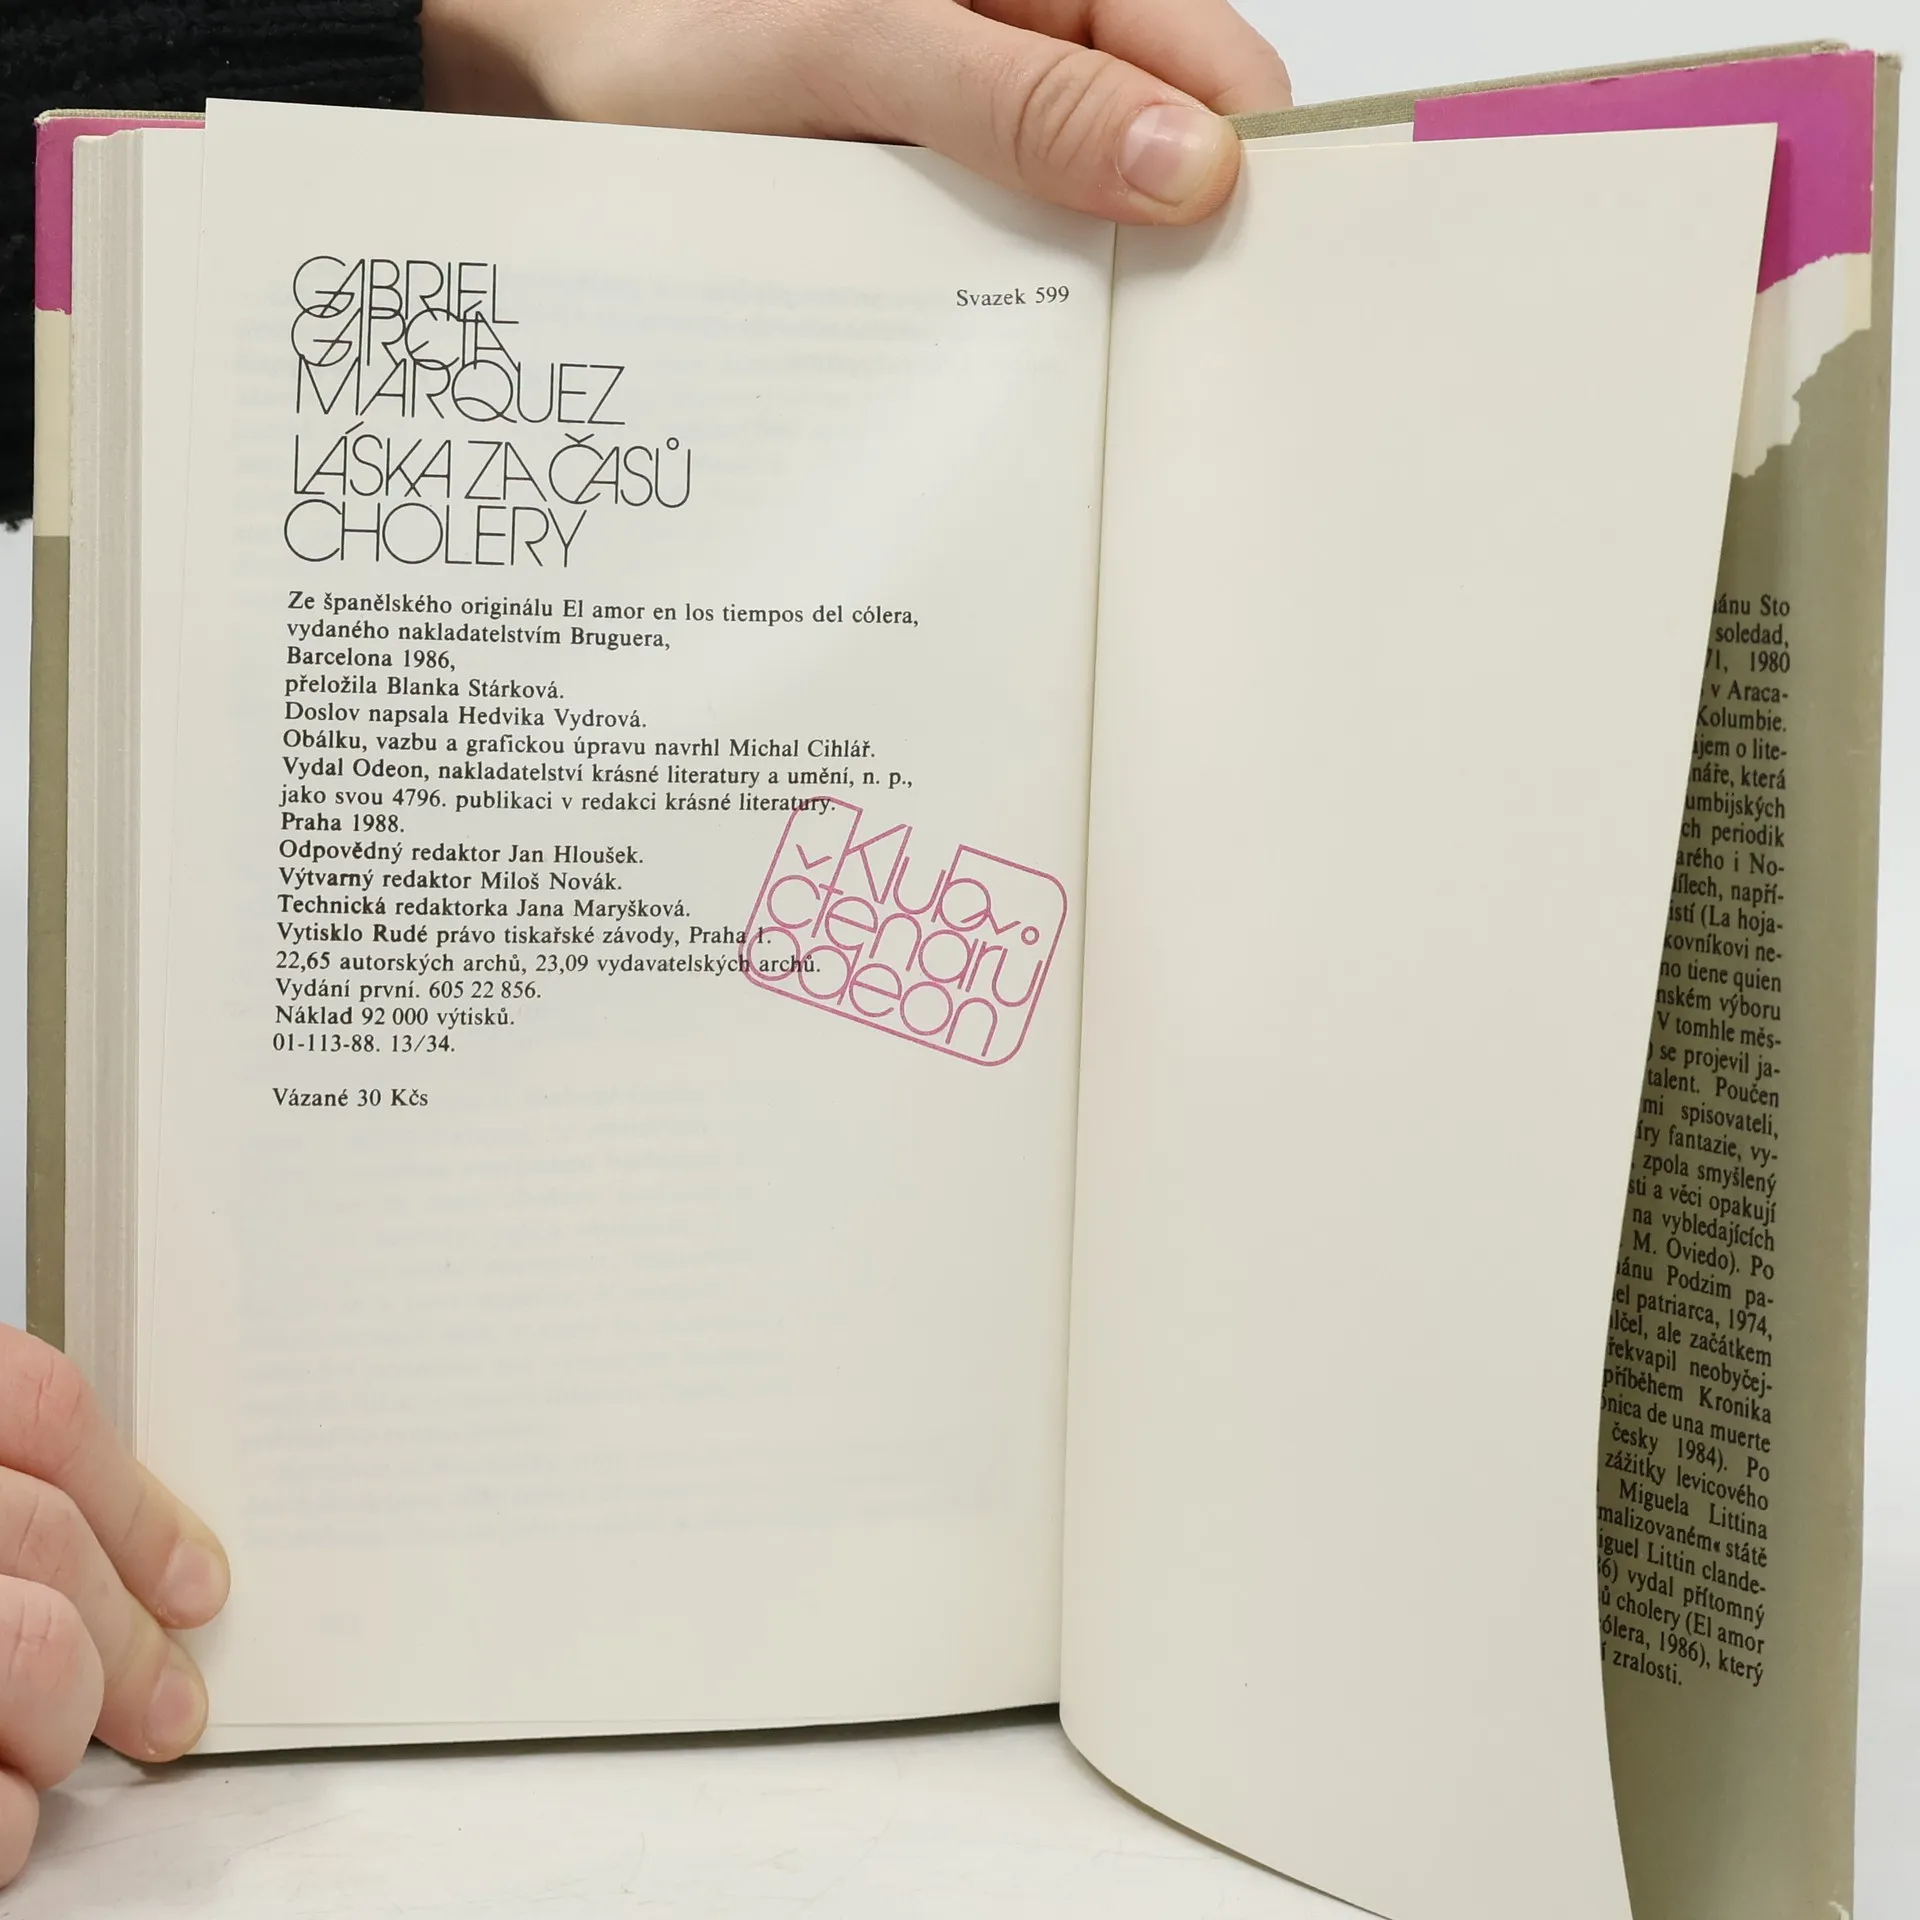 GABRIEL
GARCÍA
MÁRQUEZ
LÁSKA ZA ČASŮ
CHOLERY
Svazek 599
Ze španělského originálu El amor en los tiempos del cólera,
vydaného nakladatelstvím Bruguera,
Barcelona 1986,
přeložila Blanka Stárková.
Doslov napsala Hedvika Vydrová.
Obálku, vazbu a grafickou úpravu navrhl Michal Cihlář.
Vydal Odeon, nakladatelství krásné literatury a umění, n. p.,
jako svou 4796. publikaci v redakci krásné literatury.
Praha 1988.
Odpovědný redaktor Jan Hloušek.
Výtvarný redaktor Miloš Novák.
Technická redaktorka Jana Maryšková.
Vytisklo Rudé právo tiskařské závody, Praha 1.
22,65 autorských archů, 23,09 vydavatelských archů.
Vydání první. 605 22 856.
Náklad 92 000 výtisků.
01-113-88. 13/34.
Vázané 30 Kčs
Klub
čtenářů
Odeon
Sto
soledad,
1980
v Araca-
Kolumbie.
o lite-
která
periodik
i No-
napří-
(La hoja-
ne-
no tiene quien
výboru
V tomhle měs-
se projevil ja-
talent. Poučen
spisovateli,
fantazie, vy-
zpola smyšlený
a věci opakují
na vybledajících
M. Oviedo). Po
Podzim pa-
patriarca, 1974,
ale začátkem
neobyčej-
příběhem Kronika
de una muerte
česky 1984). Po
zážitky levicového
Miguela Littina
státě
Littin clande-
vydal přítomný
cholery (El amor
1986), který
zralosti.